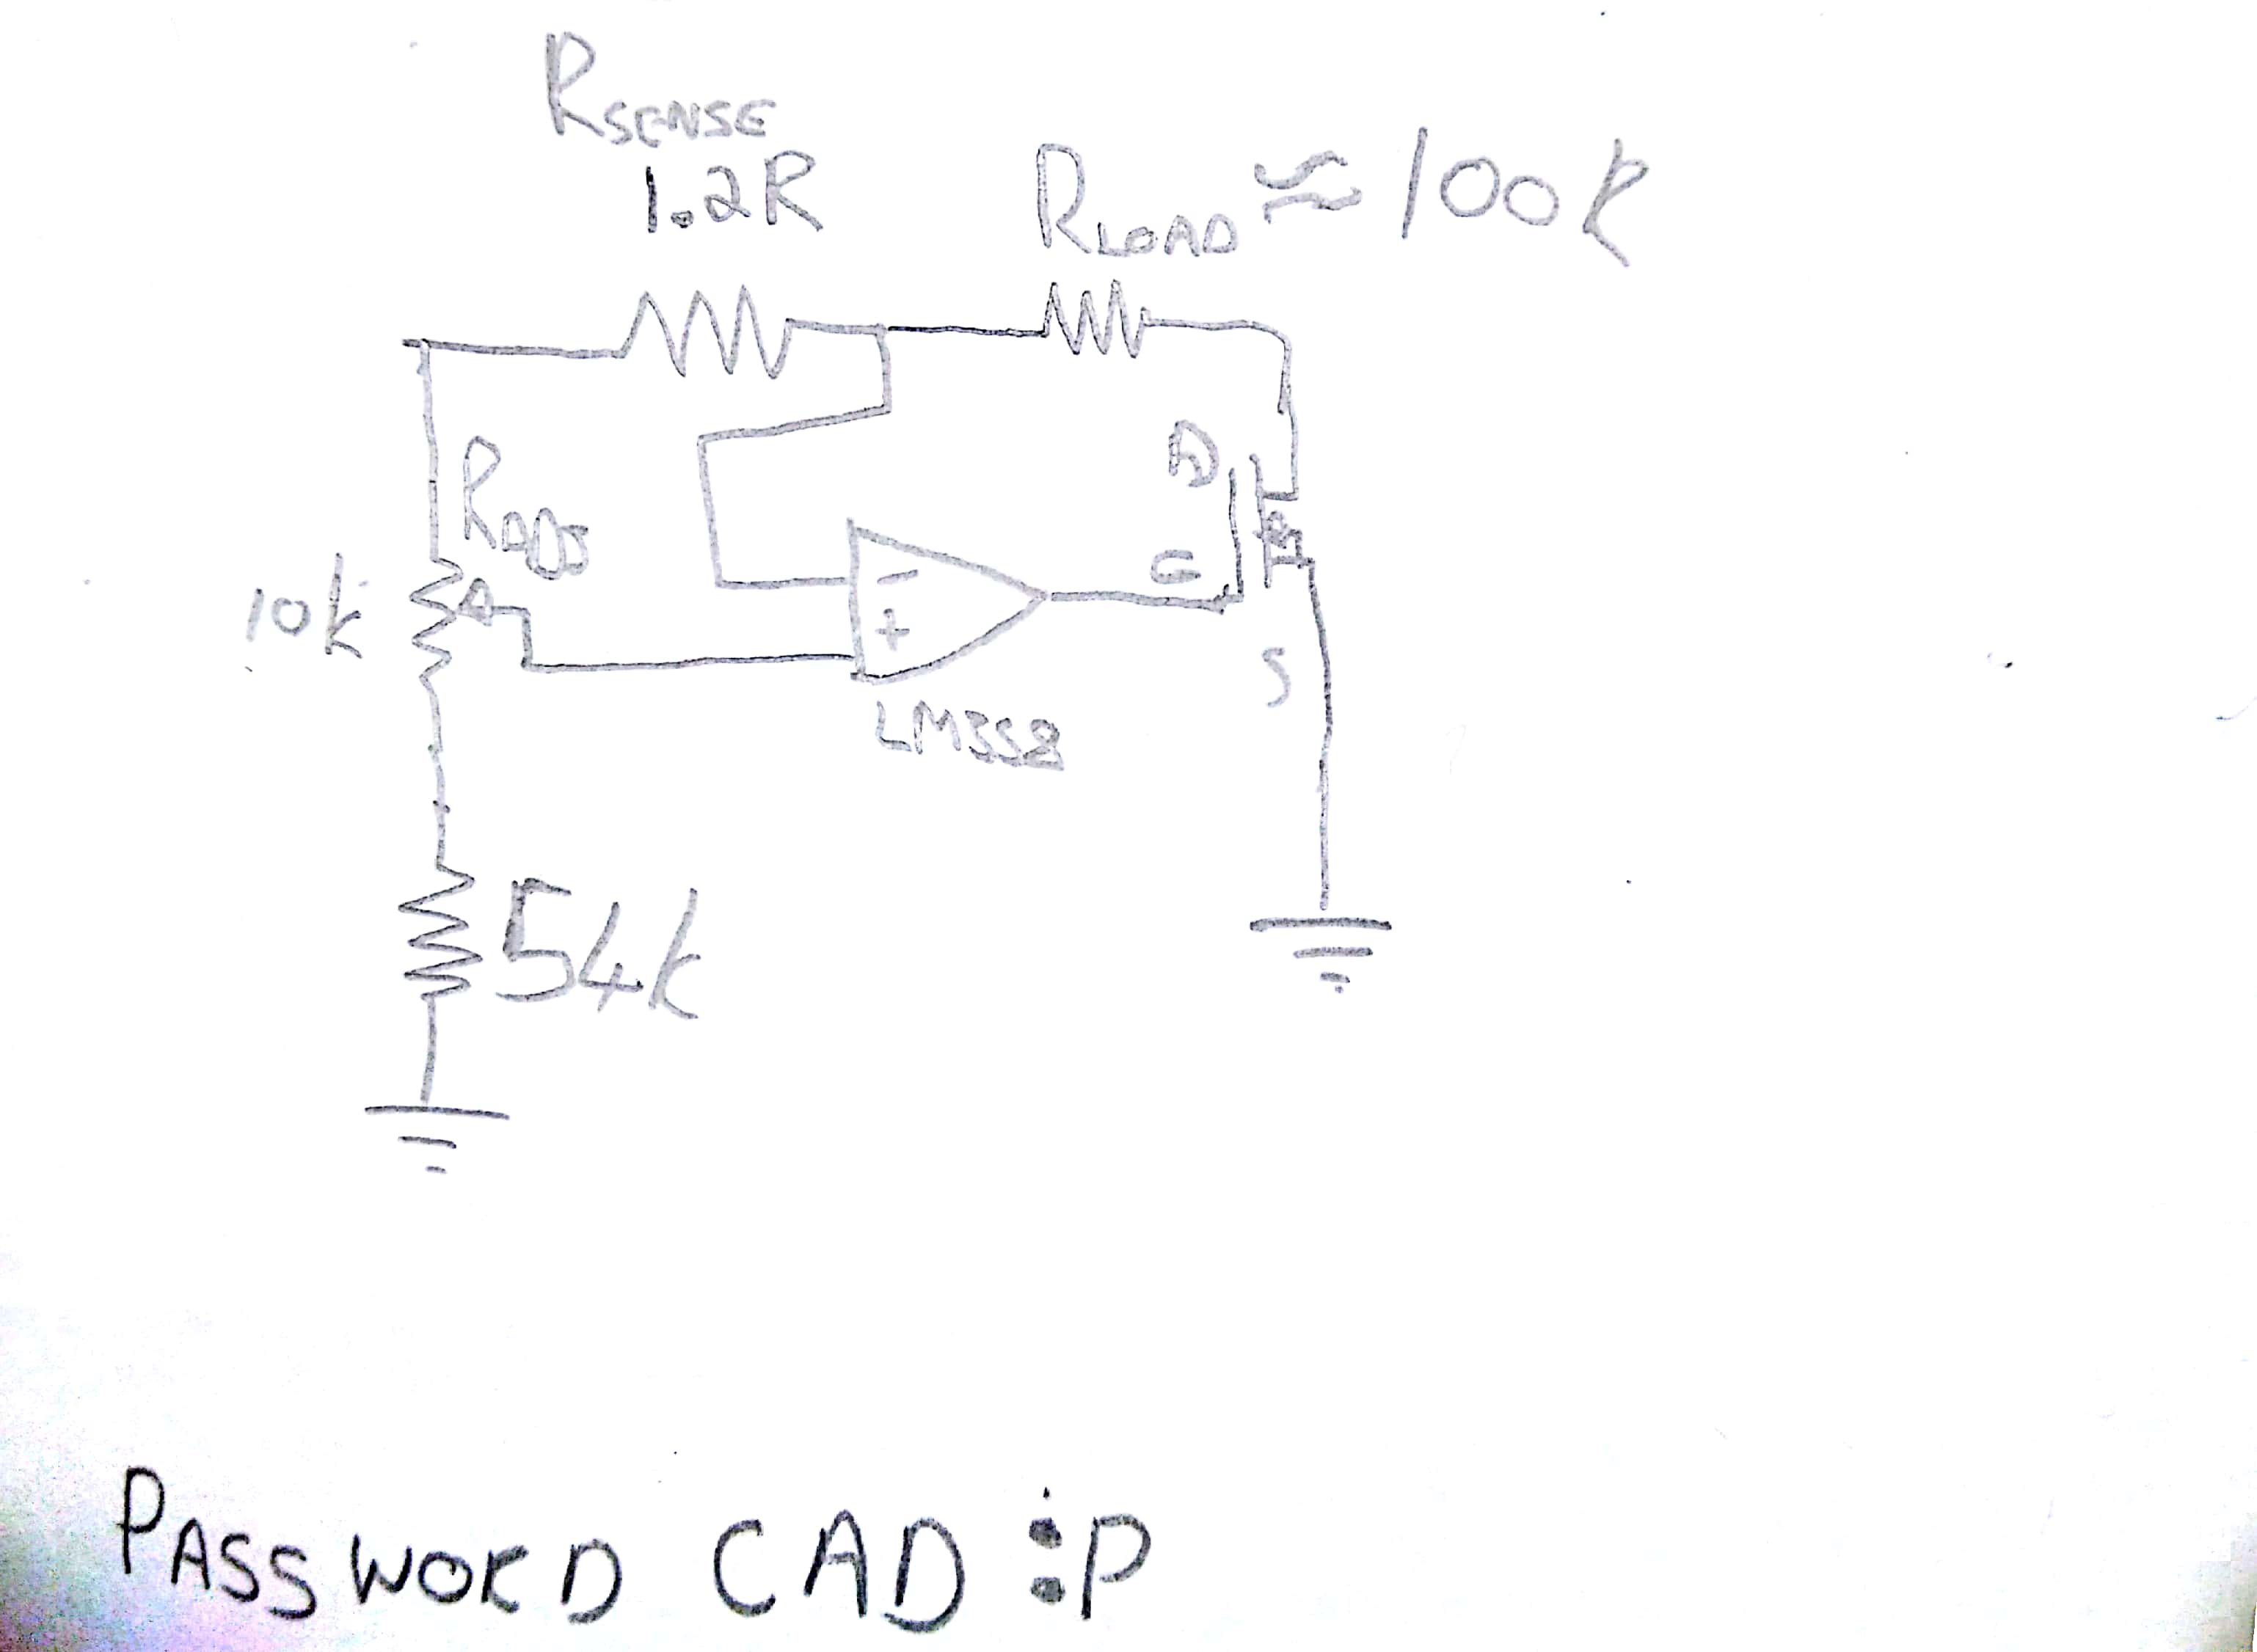 RSENSE
1.2R
RLOAD ≈ 100R
RADJ
10k
D
G
S
-
+
LM358
54k
PASSWORD CAD :P